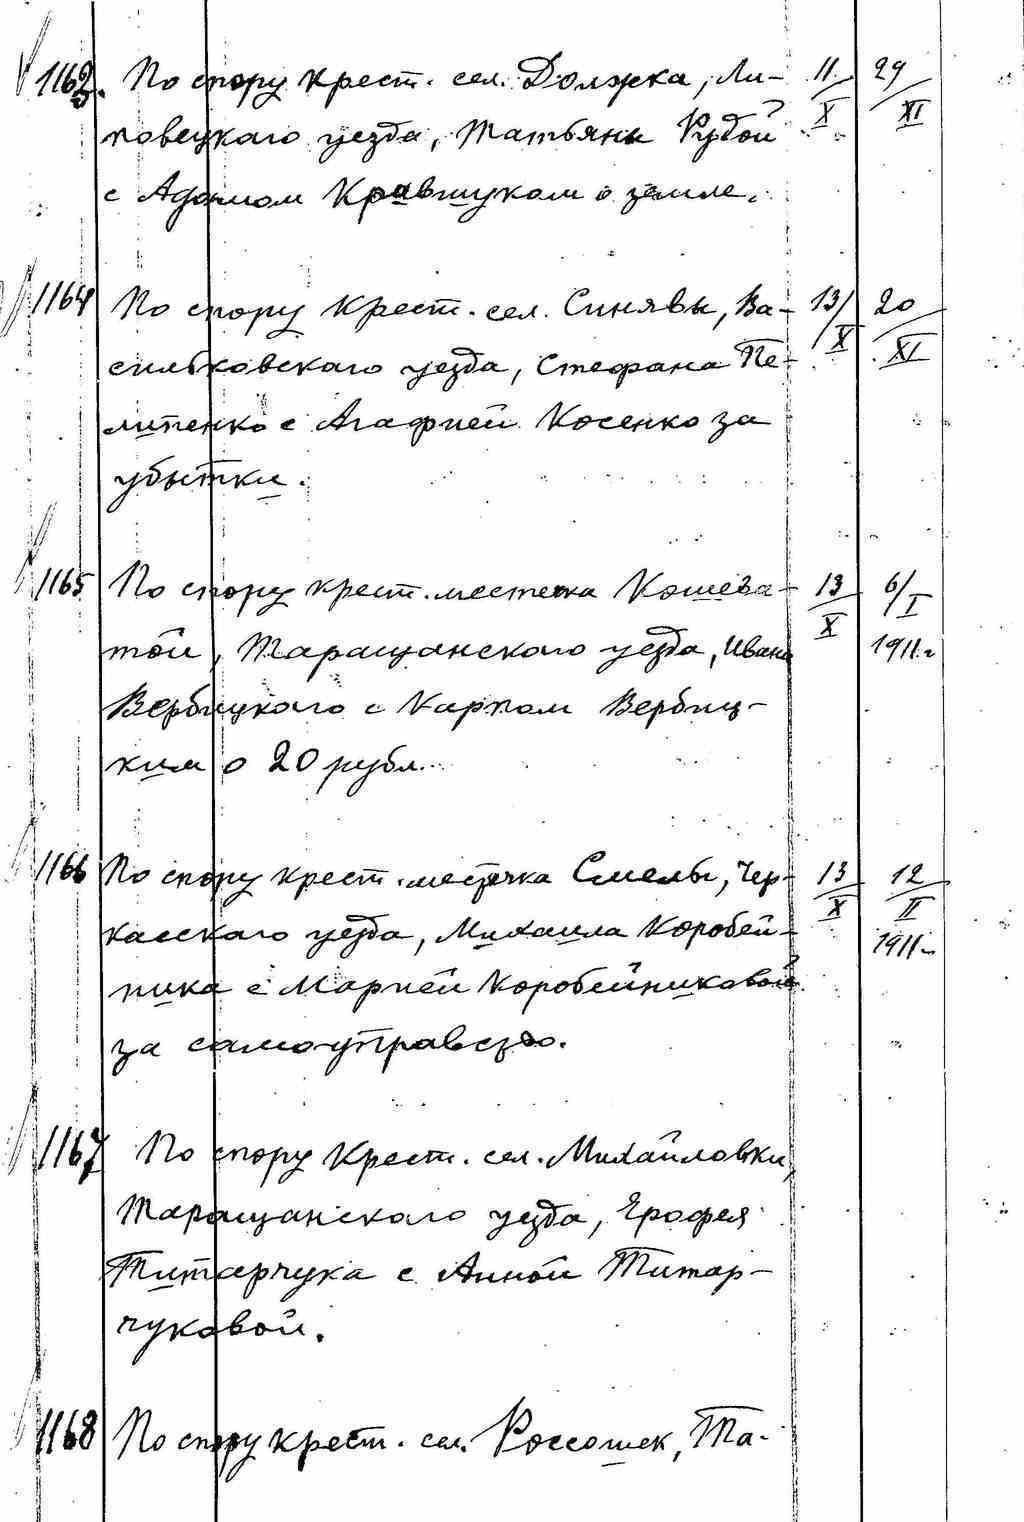 1163. По спору крест. сел. Должка, Ли- 11/X 29/XI
повецкаго уезда, Татьяны Рудой
с Адамом Кравчуком о земле.
1164 По спору крест. сел. Синявы, Ва- 13/X 20/XI
сильковского уезда, Стефана Пе-
липенко с Агафией Косенко за
убытки.
1165 По спору крест. местечка Кошева- 13/X 6/I
той, Таращанского уезда, Ивана 1911 г
Вербицкого с Карпом Вербиц-
ким о 20 рубл.
1166 По спору крест. местечка Смелы, Чер- 13/X 12/II
касского уезда, Михаила Коробей- 1911 г
ника с Марией Коробейниковой
за самоуправство.
1167 По спору крест. сел. Михайловки,
Таращанского уезда, Ерофея
Титарчука с Анной Титар-
чуковой.
1168 По спору крест. сел. Россошек, Та-